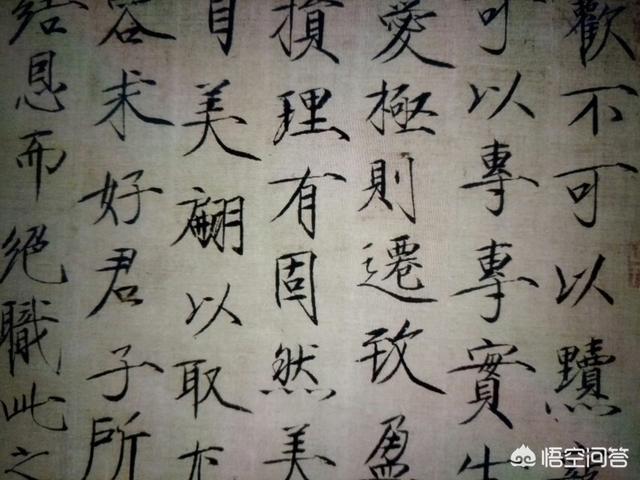 歡不可以黷
可以專專實生
愛極則遷致盈
損理有固然美
自美翩以取
容求好君子所
結恩而絕職此之
悟空问答